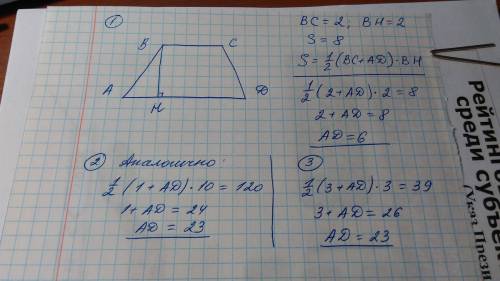 ①
B C
A H D
BC = 2, BH = 2
S = 8
S = 1/2 (BC + AD) · BH
1/2 (2 + AD) · 2 = 8
2 + AD = 8
AD = 6
② Аналогично:
1/2 (1 + AD) · 10 = 120
1 + AD = 24
AD = 23
③
1/2 (3 + AD) · 3 = 39
3 + AD = 26
AD = 23
Рейтин
среди субъе
(Указ Прези